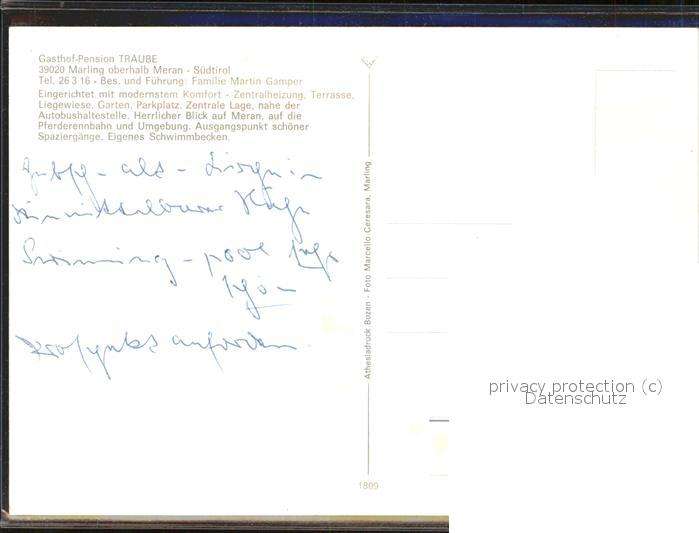 Gasthof-Pension TRAUBE
39020 Marling oberhalb Meran - Südtirol
Tel. 26 3 16 - Bes. und Führung: Familie Martin Gamper
Eingerichtet mit modernstem Komfort - Zentralheizung, Terrasse,
Liegewiese, Garten, Parkplatz. Zentrale Lage, nahe der
Autobushaltestelle. Herrlicher Blick auf Meran, auf die
Pferderennbahn und Umgebung. Ausgangspunkt schöner
Spaziergänge. Eigenes Schwimmbecken.
in
unmittelbarer Nähe
Swimming-pool sehr
schön
Prospekt anfordern
Athesiadruck Bozen - Foto Marcello Ceresara, Marling
1809
privacy protection (c)
Datenschutz